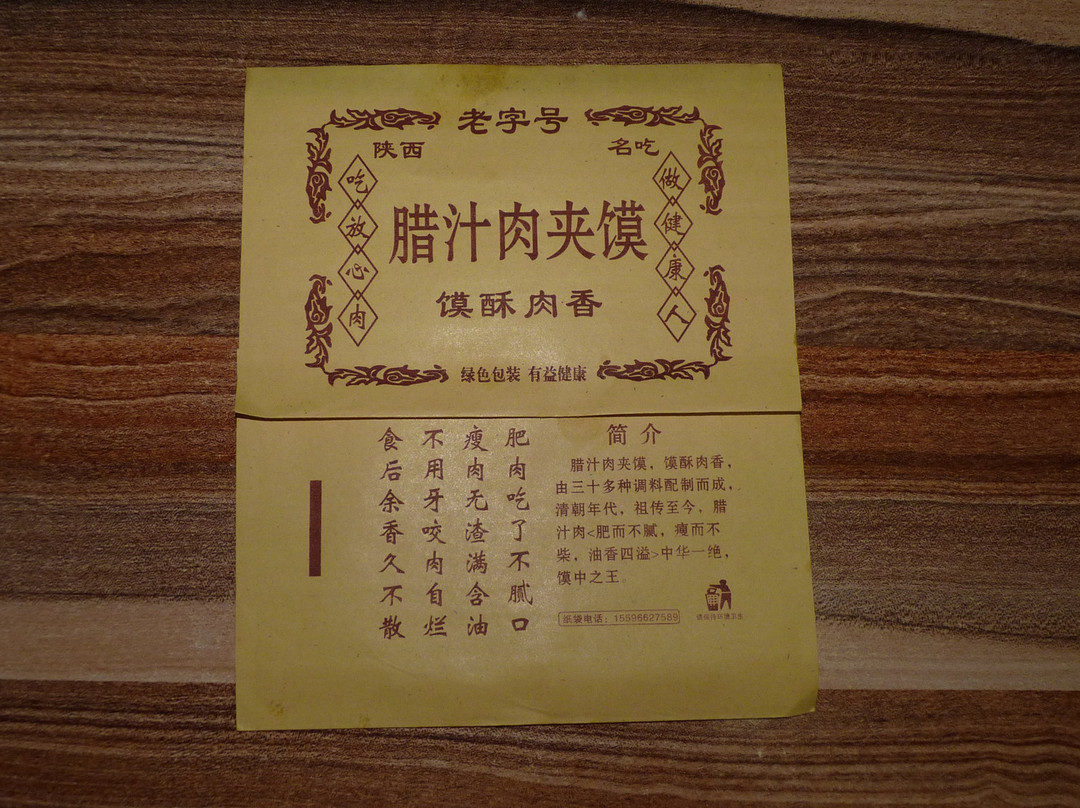 老字号
陕西 名吃
吃放心肉
做健康人
腊汁肉夹馍
馍酥肉香
绿色包装 有益健康
肥肉吃了不腻口
瘦肉无渣满含油
不用牙咬肉自烂
食后余香久不散
简介
腊汁肉夹馍，馍酥肉香，
由三十多种调料配制而成，
清朝年代，祖传至今，腊
汁肉<肥而不腻，瘦而不
柴，油香四溢>中华一绝，
馍中之王。
纸袋电话：15596627589
请保持环境卫生